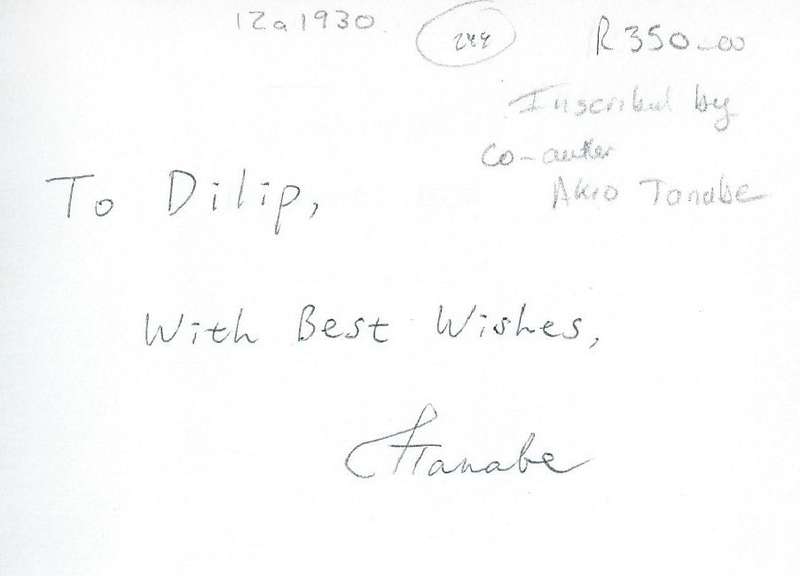 12a1930
244
R350-00
Inscribed by
Co-auther
Akio Tanabe
To Dilip,
With Best Wishes,
ATanabe